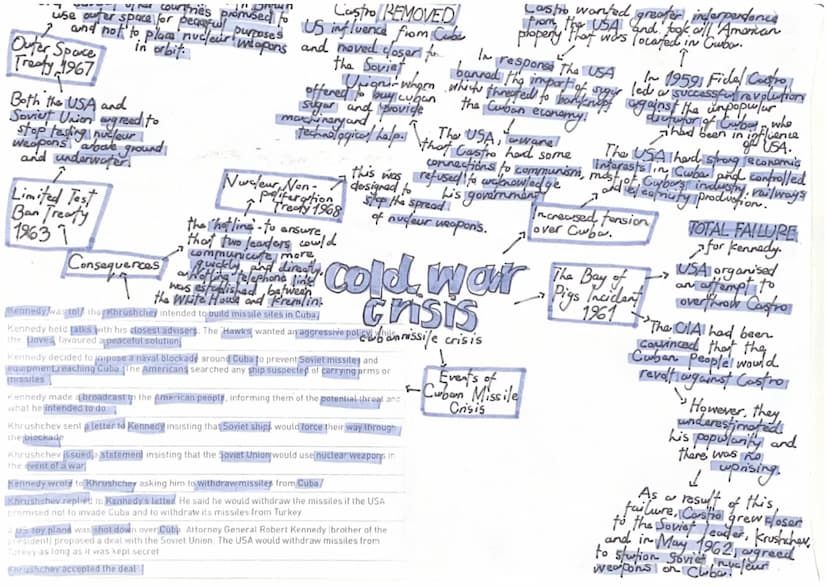 other countries promised to
use outer space for peaceful purposes
and not to place nuclear weapons
in orbit.
Outer Space
Treaty 1967
Both the USA and
Soviet Union agreed to
stop testing nuclear
weapons above ground
and underwater.
Limited Test
Ban Treaty
1963
Consequences
Castro REMOVED
US influence from Cuba
and moved closer to
the Soviet
Union whom
offered to buy cuban
sugar and provide
machinery and
technological help.
Nuclear Non-
proliferation
Treaty 1968
this was
designed to
stop the spread
of nuclear weapons.
the 'hotline' - to ensure
that two leaders could
communicate more
quickly and directly,
a telephone link
was established between
the White House and Kremlin.
Castro wanted greater independence
from the USA and took all American
property that was located in Cuba.
In response the USA
banned the import of sugar
which threated to bankrupt
the Cuban economy.
In 1959, Fidel Castro
led a successful revolution
against the unpopular
dictator of Cuba, who
had been in influence
of USA.
The USA, aware
that Castro had some
connections to communism,
refused to acknowledge
his government
The USA had strong economic
interests in Cuba and controlled
most of Cuba's industry, railways
and electricity production.
Increased tension
over Cuba.
cold war
crisis
cuban missile crisis
The Bay of
Pigs Incident
1961
TOTAL FAILURE
for Kennedy.
USA organised
an attempt to
overthrow Castro
The CIA had been
convinced that the
Cuban people would
revolt against Castro
However, they
underestimated
his popularity and
there was no
uprising.
As a result of this
failure, Castro grew closer
to the Soviet leader, Krushchev,
and in May 1962, agreed
to station Soviet nuclear
weapons on Cuba.
Events of
Cuban Missile
Crisis
Kennedy was told that Khrushchev intended to build missile sites in Cuba.
Kennedy held talks with his closest advisers. The 'Hawks' wanted an aggressive policy while
the 'Doves' favoured a peaceful solution.
Kennedy decided to impose a naval blockade around Cuba to prevent Soviet missiles and
equipment reaching Cuba. The Americans searched any ship suspected of carrying arms or
missiles.
Kennedy made a broadcast to the American people, informing them of the potential threat and
what he intended to do.
Khrushchev sent a letter to Kennedy insisting that Soviet ships would force their way through
the blockade.
Khrushchev issued a statement insisting that the Soviet Union would use nuclear weapons in
the event of a war.
Kennedy wrote to Khrushchev asking him to withdraw missiles from Cuba.
Khrushchev replied to Kennedy's letter. He said he would withdraw the missiles if the USA
promised not to invade Cuba and to withdraw its missiles from Turkey.
A US spy plane was shot down over Cuba. Attorney General Robert Kennedy (brother of the
president) proposed a deal with the Soviet Union. The USA would withdraw missiles from
Turkey as long as it was kept secret
Khrushchev accepted the deal.